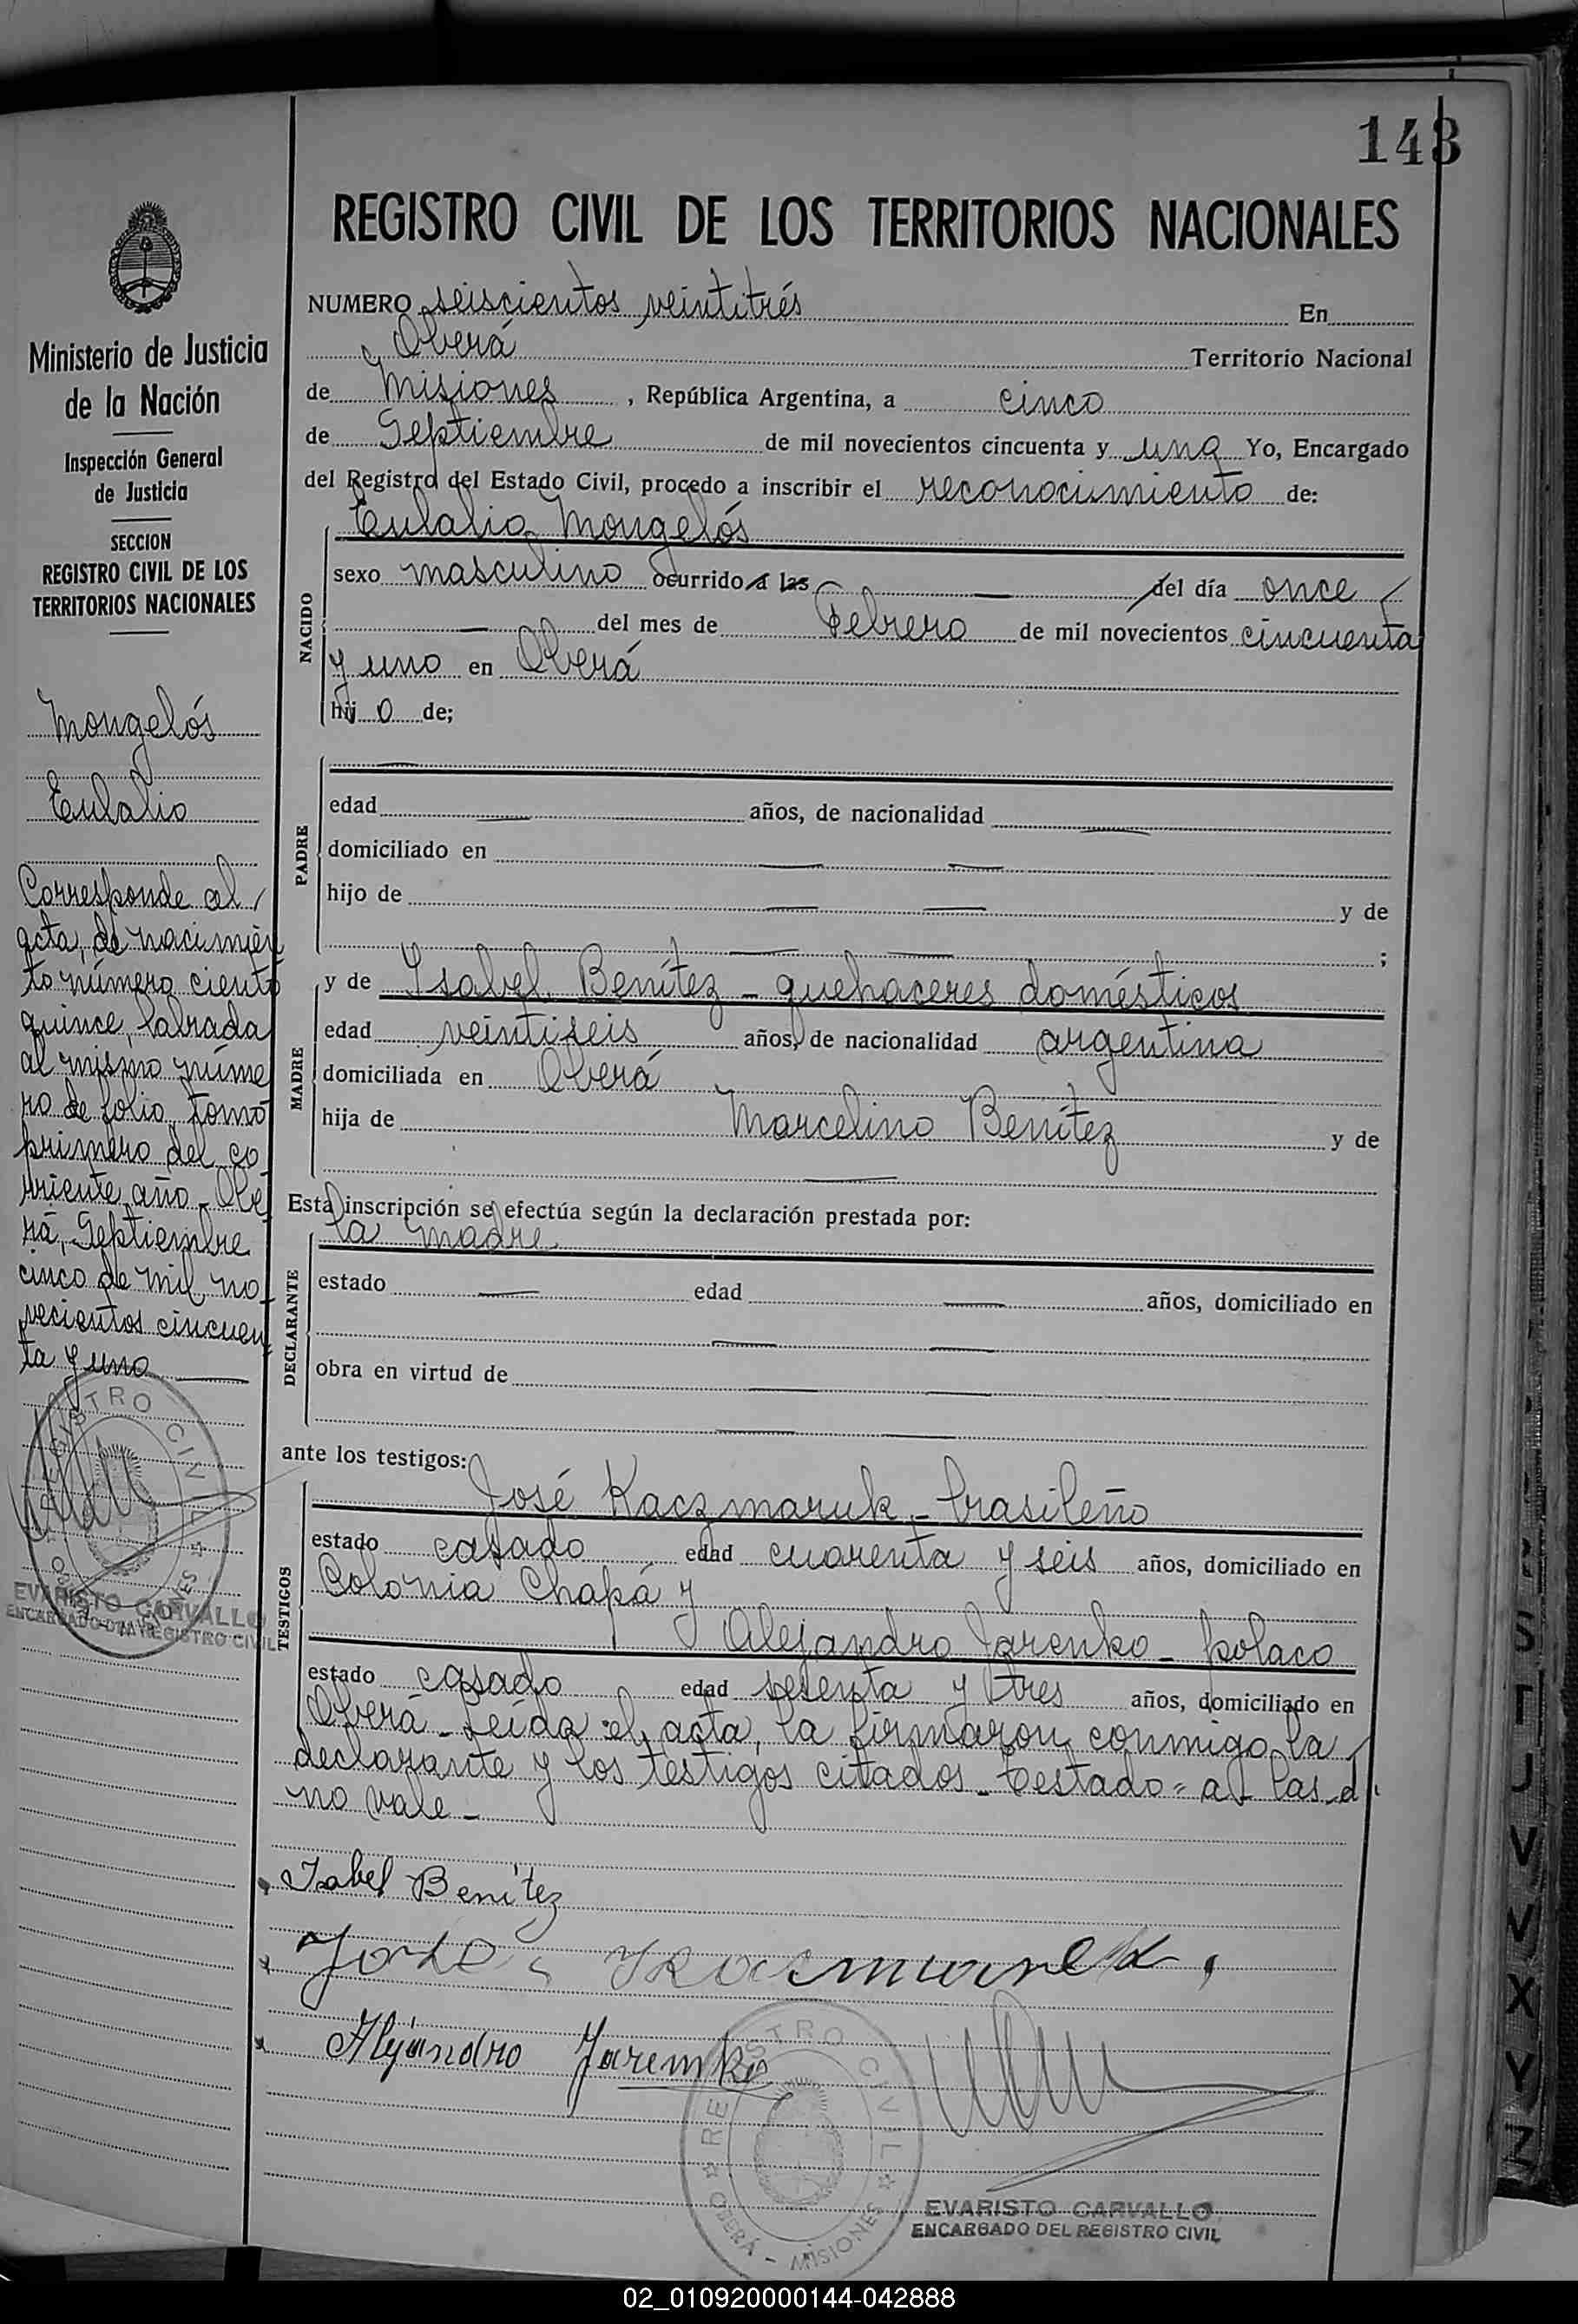 143
REGISTRO CIVIL DE LOS TERRITORIOS NACIONALES
Ministerio de Justicia
de la Nación
Inspección General
de Justicia
SECCION
REGISTRO CIVIL DE LOS
TERRITORIOS NACIONALES
Mongelós
Eulalio
Corresponde al
acta, de nacimien
to número ciento
quince, labrada
al mismo núme
ro de folio, tomo
primero del co
rriente año - Obe
rá, Septiembre
cinco de mil no
vecientos cincuen
ta y uno
REGISTRO CIVIL
EVARISTO CARVALLO
ENCARGADO DEL REGISTRO CIVIL
NUMERO seiscientos veintitrés En
Oberá Territorio Nacional
de Misiones, República Argentina, a cinco
de Septiembre de mil novecientos cincuenta y uno Yo, Encargado
del Registro del Estado Civil, procedo a inscribir el reconocimiento de:
NACIDO
Eulalio Mongelós
sexo masculino ocurrido a las del día once
del mes de Febrero de mil novecientos cincuenta
y uno en Oberá
hijo de;
PADRE
edad años, de nacionalidad
domiciliado en
hijo de y de
;
MADRE
y de Ysabel Benítez - quehaceres domésticos
edad veintiseis años, de nacionalidad argentina
domiciliada en Oberá
hija de Marcelino Benítez y de
Esta inscripción se efectúa según la declaración prestada por:
DECLARANTE
la madre
estado edad años, domiciliado en
obra en virtud de
ante los testigos:
TESTIGOS
José Kaczmaruk - brasileño
estado casado edad cuarenta y seis años, domiciliado en
Colonia Chapá y
Alejandro Jarenko - polaco
estado casado edad sesenta y tres años, domiciliado en
Oberá - Leída el acta, la firmaron conmigo la
declarante y los testigos citados - Testado = a - las - d
no vale -
Isabel Benítez
Alejandro Jaremko
REGISTRO CIVIL
OBERÁ - MISIONES
EVARISTO CARVALLO
ENCARGADO DEL REGISTRO CIVIL
S
T
U
V
V
X
Y
Z
02_010920000144-042888